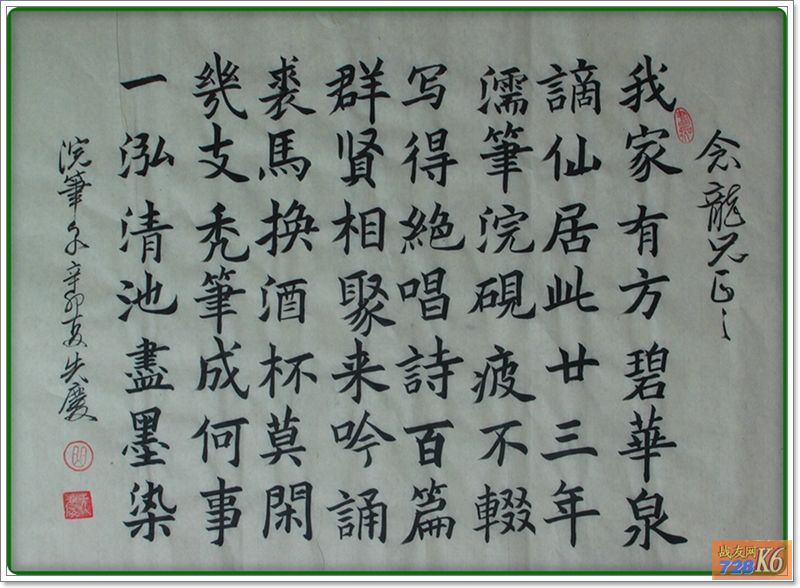 念龍兄正之
我家有方碧華泉
謫仙居此廿三年
濡筆浣硯疲不輟
写得絶唱詩百篇
群賢相聚来吟誦
裘馬換酒杯莫閑
幾支秃筆成何事
一泓清池盡墨染
浣筆泉辛卯夏
战友网
728K6